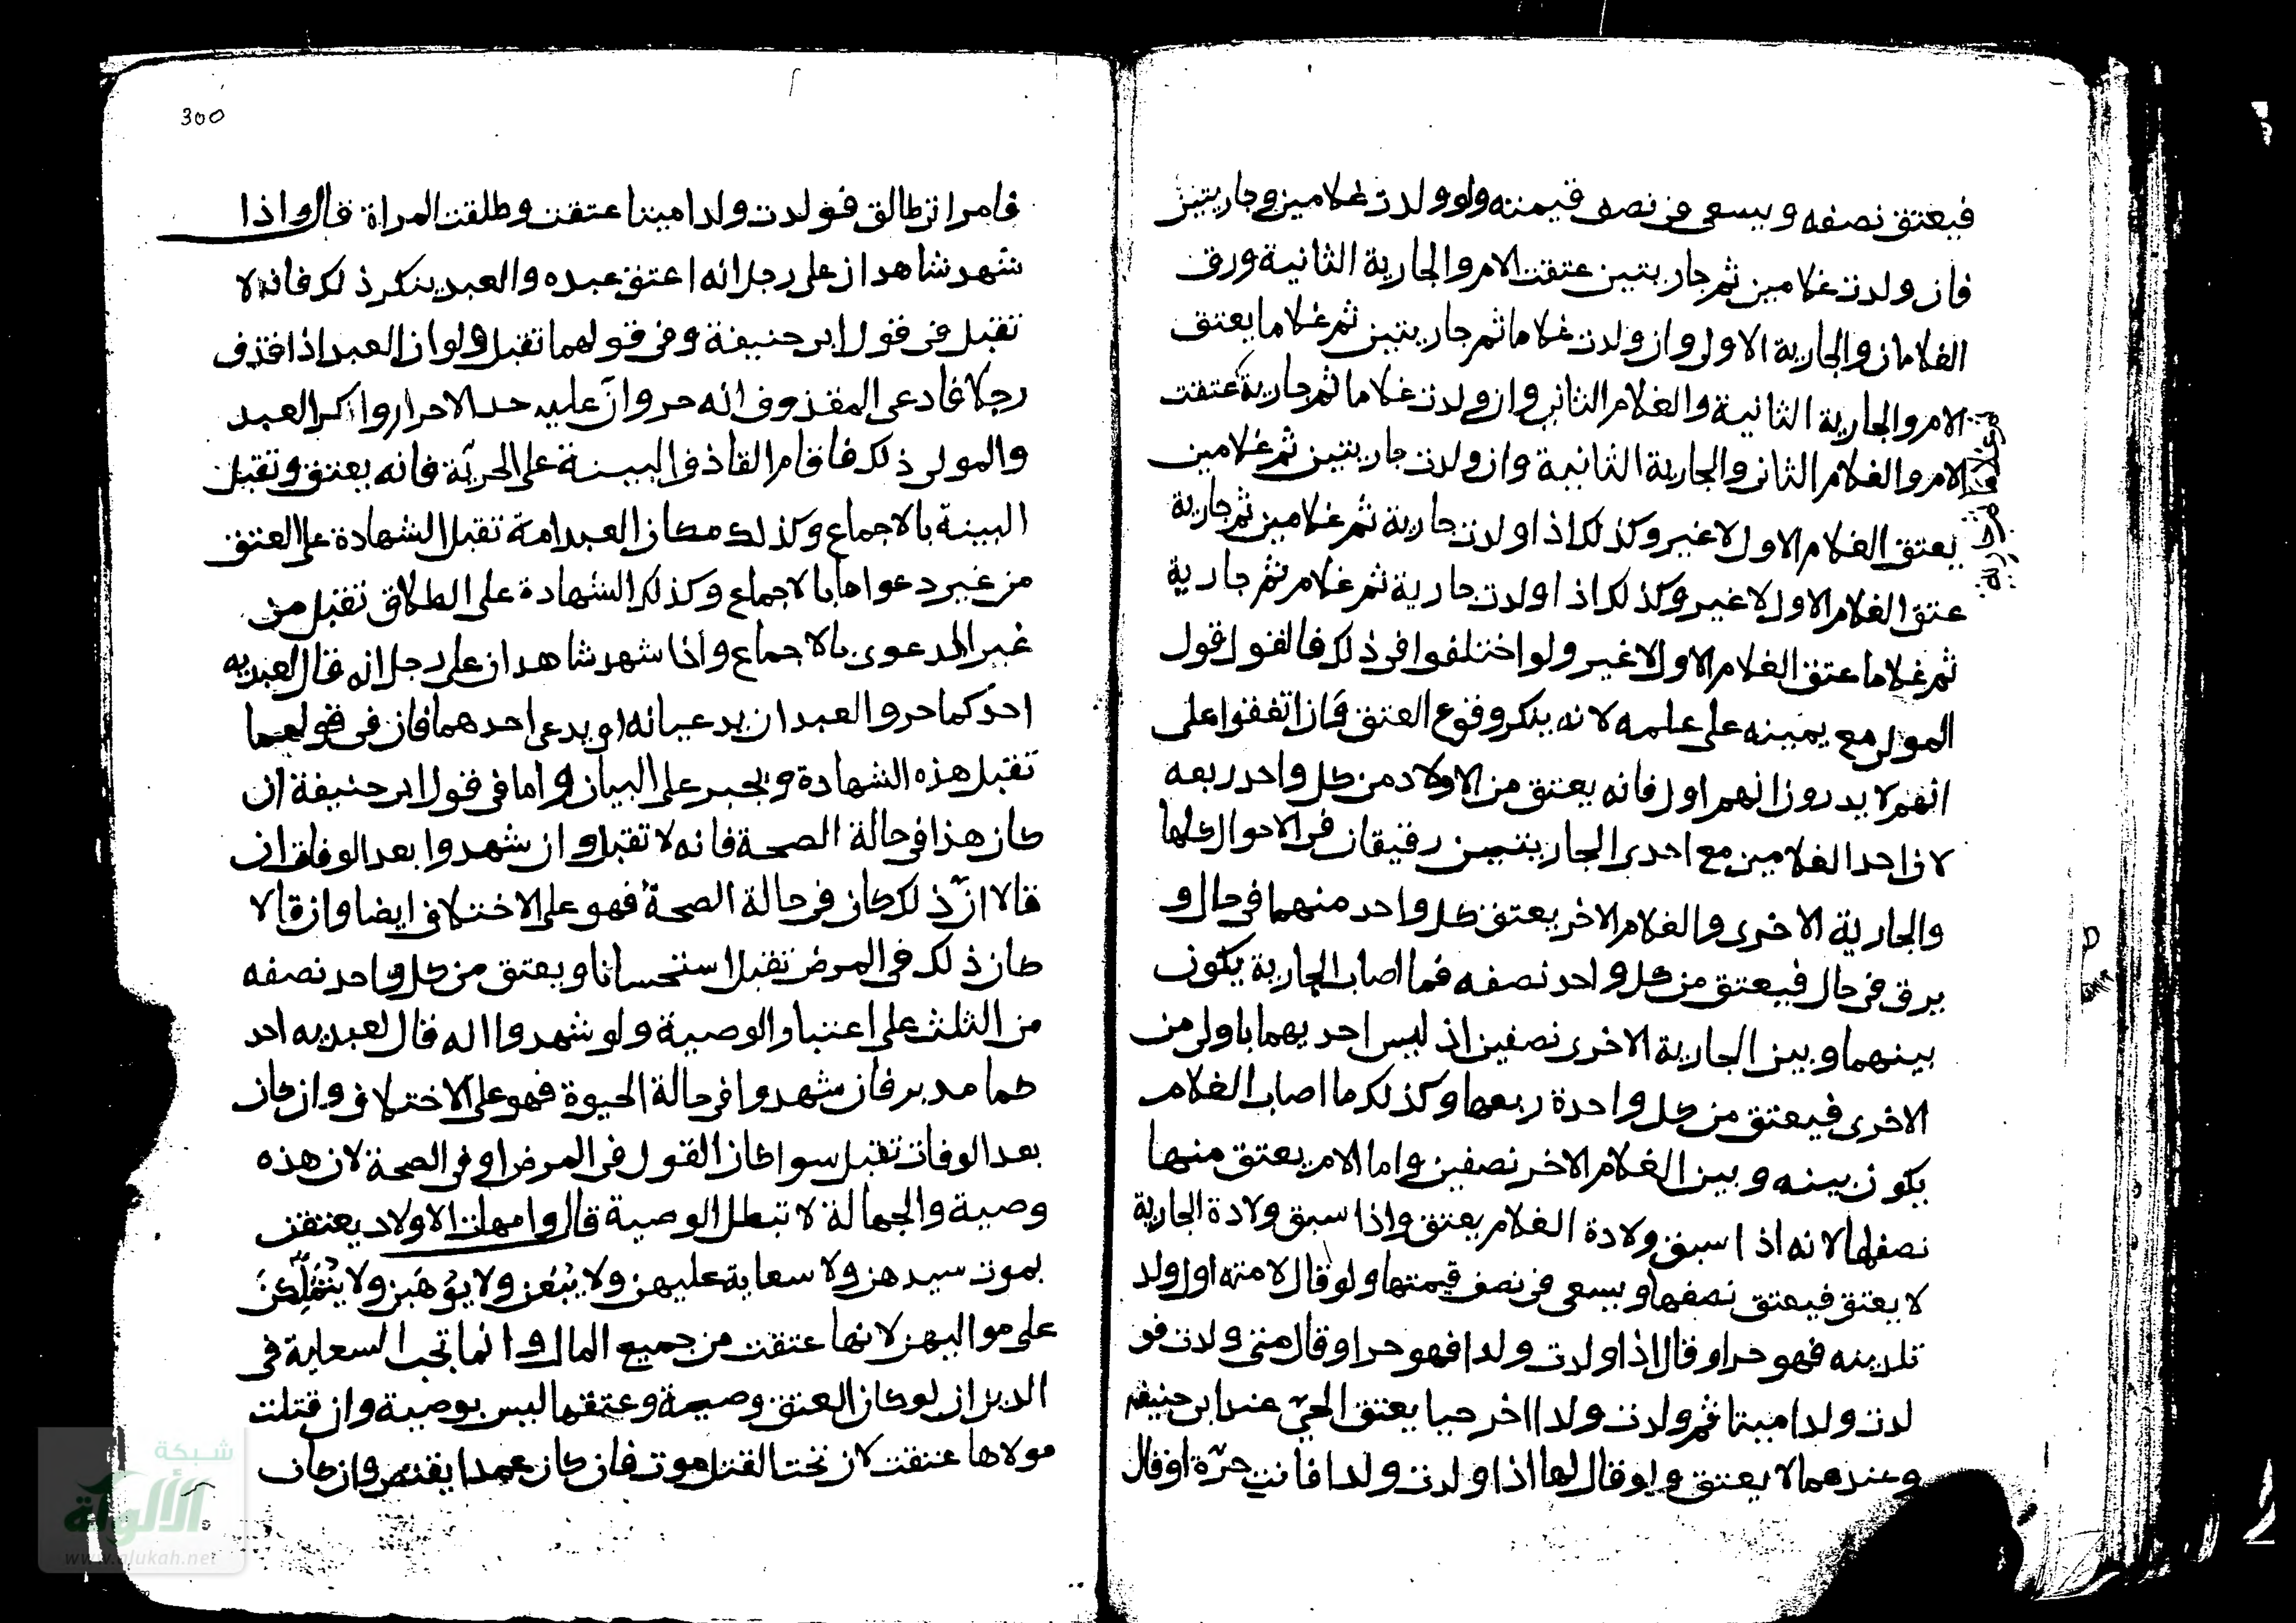 فيعتق نصفه ويسعى في نصف قيمته ولو ولدت غلامين وجاريتين
فان ولدت غلامين ثم جاريتين عتقت الام والجارية الثانية ورق
الغلامان والجارية الاولى وان ولدت غلاما ثم جاريتين ثم غلاما يعتق
الام والجارية الثانية والغلام الثاني وان ولدت غلاما ثم جارية عتقت
ثم غلاما ثم جارية
الام والغلام الثاني والجارية الثانية وان ولدت جاريتين ثم غلامين
يعتق الغلام الاول لا غير وكذلك اذا ولدت جارية ثم غلامين ثم جارية
عتق الغلام الاول لا غير وكذلك اذا ولدت جارية ثم غلام ثم جارية
ثم غلاما عتق الغلام الاول لا غير ولو اختلفوا في ذلك فالقول قول
المولى مع يمينه على علمه لانه ينكر وقوع العتق فان اتفقوا على
انهم لا يدرون انهم اول فانه يعتق من الاولاد من كل واحد ربعه
لان احد الغلامين مع احدى الجاريتين رقيقان في الاحوال كلها
والجارية الاخرى والغلام الاخر يعتق كل واحد منهما في حال و
يرق في حال فيعتق من كل واحد نصفه فما اصاب الجارية يكون
بينهما وبين الجارية الاخرى نصفين اذ ليس احديهما باولى من
الاخرى فيعتق من كل واحدة ربعها وكذلك ما اصاب الغلام
يكون بينه وبين الغلام الاخر نصفين واما الام يعتق منها
نصفها لانه اذا سبق ولادة الغلام يعتق واذا سبق ولادة الجارية
لا يعتق فيعتق نصفها ويسعى في نصف قيمتها ولو قال لامته اول ولد
تلدينه فهو حر او قال اذا ولدت ولدا فهو حر او قال متى ولدت فو
لدت ولدا ميتا ثم ولدت ولدا اخر حيا يعتق الحي عند ابي حنيفه
وعندهما لا يعتق ولو قال لها اذا ولدت ولدا فانت حرّة او قال
300
فامراتي طالق فولدت ولدا ميتا عتقت وطلقت المراة قال واذا
شهد شاهدان على رجل انه اعتق عبده والعبد ينكر ذلك فانه لا
تقبل في قول ابي حنيفة وفي قولهما تقبل ولو ان العبد اذا قذف
رجلا فادعى المقذوف انه حر وانّ عليه حد الاحرار وانكر العبد
والمولى ذلك فاقام القاذف البينة على الحريّة فانه يعتق وتقبل
البينة بالاجماع وكذلك مكان العبد امة تقبل الشهادة على العتق
من غير دعواها بالاجماع وكذلك الشهادة على الطلاق تقبل من
غير المدعوى بالاجماع واذا شهد شاهدان على رجل انه قال لعبديه
احدكما حر والعبدان يدعيانه او يدعي احدهما فان في قولهما
تقبل هذه الشهادة ويجبر على البيان واما في قول ابي حنيفة ان
كان هذا في حالة الصحة فانه لا تقبل وان شهدوا بعد الوفاة ان
قالا انّ ذلك كان في حالة الصحة فهو على الاختلاف ايضا وان قالا
كان ذلك في المرض تقبل استحسانا ويعتق من كل واحد نصفه
من الثلث على اعتبار الوصية ولو شهدوا انه قال لعبديه احد
كما مدبر فان شهدوا في حالة الحيوة فهو على الاختلاف وان كان
بعد الوفات تقبل سوا كان القول في المرض او في الصحة لان هذه
وصية والجهالة لا تبطل الوصية قال وامهات الاولاد يعتقن
بموت سيدهن ولا سعاية عليهن ولا يُبَعْن ولا يُوهَبن ولا يُتملّكن
على مواليهن لانها عتقت من جميع المال وانما تجب السعاية في
الدين ان لو كان العتق وصية وعتقها ليس بوصية وان قتلت
مولاها عتقت لان تحت القتل موت فان كان عمدا يقتص وان كان
شبكة
الألوكة
www.alukah.net